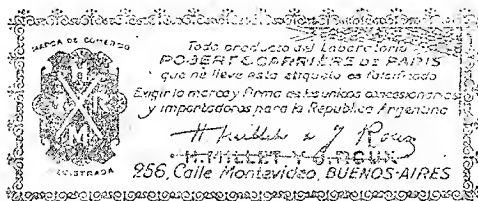 MARCA DE COMERCIO
H
R
M
REGISTRADA
Todo producto del Laboratorio
ROBERT & CARRIÈRE DE PARIS
que no lleve esta etiqueta es falsificado
Exigir la marca y firma de los unicos concesionarios
y importadores para la Republica Argentina
H. Millet & J. Roux
H. MILLET Y J. ROUX
256, Calle Montevideo, BUENOS-AIRES